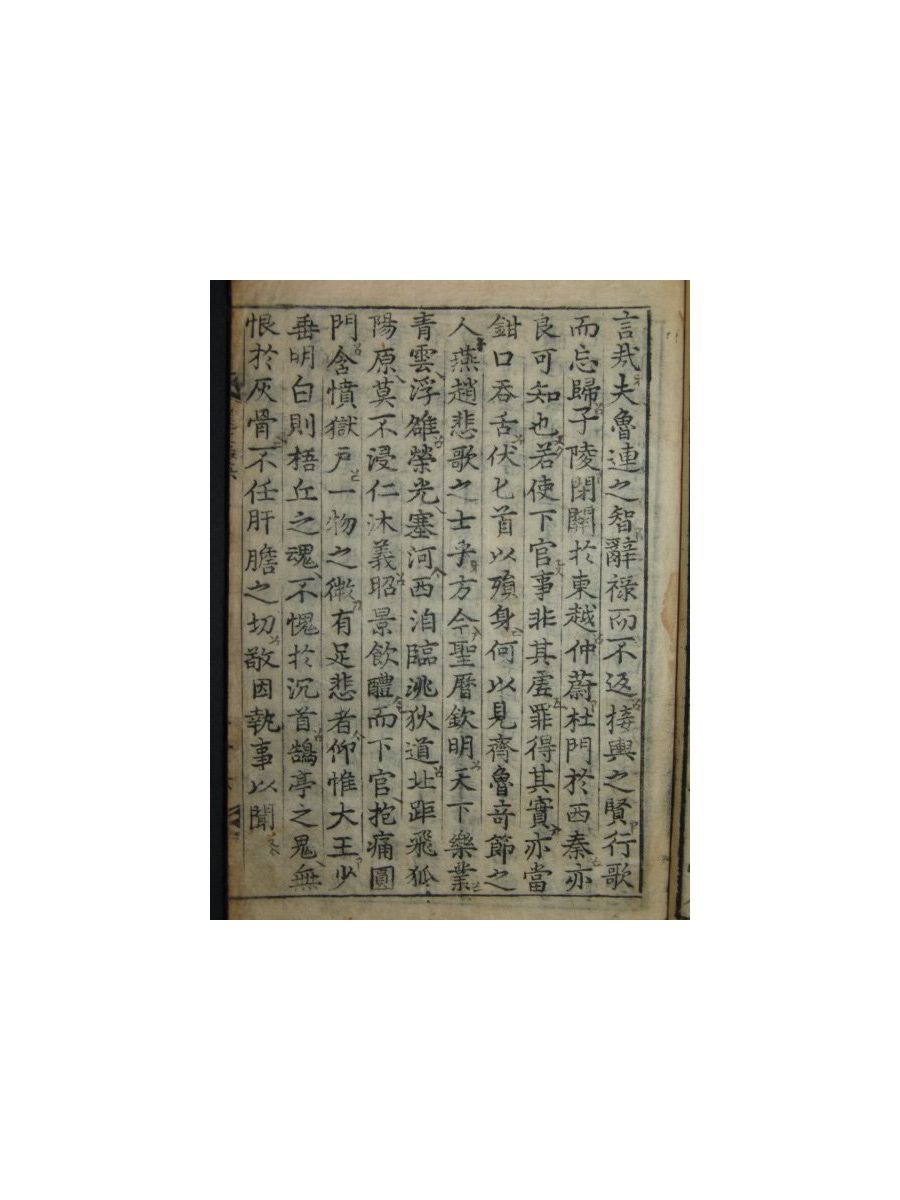 言哉夫魯連之智辭祿而不返接輿之賢行歌
而忘歸子陵閉關於東越仲蔚杜門於西秦亦
良可知也若使下官事非其虗罪得其實亦當
鉗口吞舌伏匕首以殞身何以見齊魯竒節之
人燕趙悲歌之士乎方今聖曆欽明天下樂業
青雲浮雒榮光塞河西洎臨洮狄道北距飛狐
陽原莫不浸仁沐義昭景飮醴而下官抱痛圓
門含憤獄戶一物之微有足悲者仰惟大王少
垂明白則梧丘之魂不愧於沉首鵠亭之鬼無
恨於灰骨不任肝膽之切敬因執事以聞